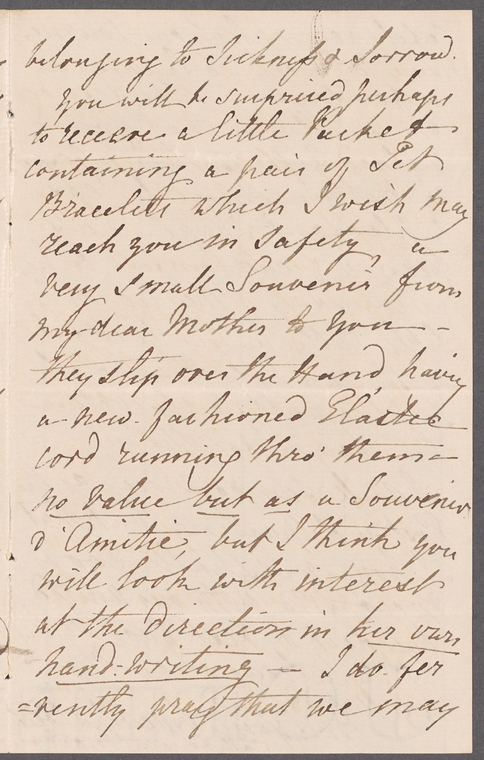 belonging to Sickness & Sorrow.
You will be surprised perhaps
to receive a little Packet
containing a pair of Jet
Bracelets which I wish may
reach you in Safety, a
very small Souvenir from
my dear Mother to you -
they slip over the Hand, having
a new fashioned Elastic
cord running thro' them -
no value but as a Souvenir
d'Amitié, but I think you
will look with interest
at the direction in her own
hand-writing - I do fer
=vently pray that we may